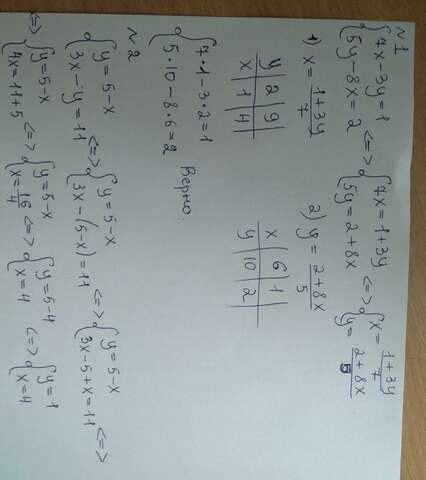 №1
{7x-3y=1 {5y-8x=2 <=> {7x=1+3y {5y=2+8x <=> {x=(1+3y)/7 {y=(2+8x)/5
1) x=(1+3y)/7 2) y=(2+8x)/5
y | 2 | 9 x | 6 | 1
x | 1 | 4 y | 10 | 2
{7·1-3·2=1 {5·10-8·6=2 Верно.
№2
{y=5-x {3x-y=11 <=> {y=5-x {3x-(5-x)=11 <=> {y=5-x {3x-5+x=11 <=>
<=> {y=5-x {4x=11+5 <=> {y=5-x {x=16/4 <=> {y=5-4 {x=4 <=> {y=1 {x=4